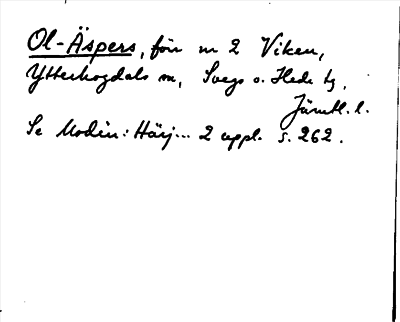 Ol-Äspers, för nr 2 Viken,
Ytterhogdals sn, Svegs o. Hede tg,
Jämtl. l.
Se Modin: Härj... 2 uppl. s. 262.